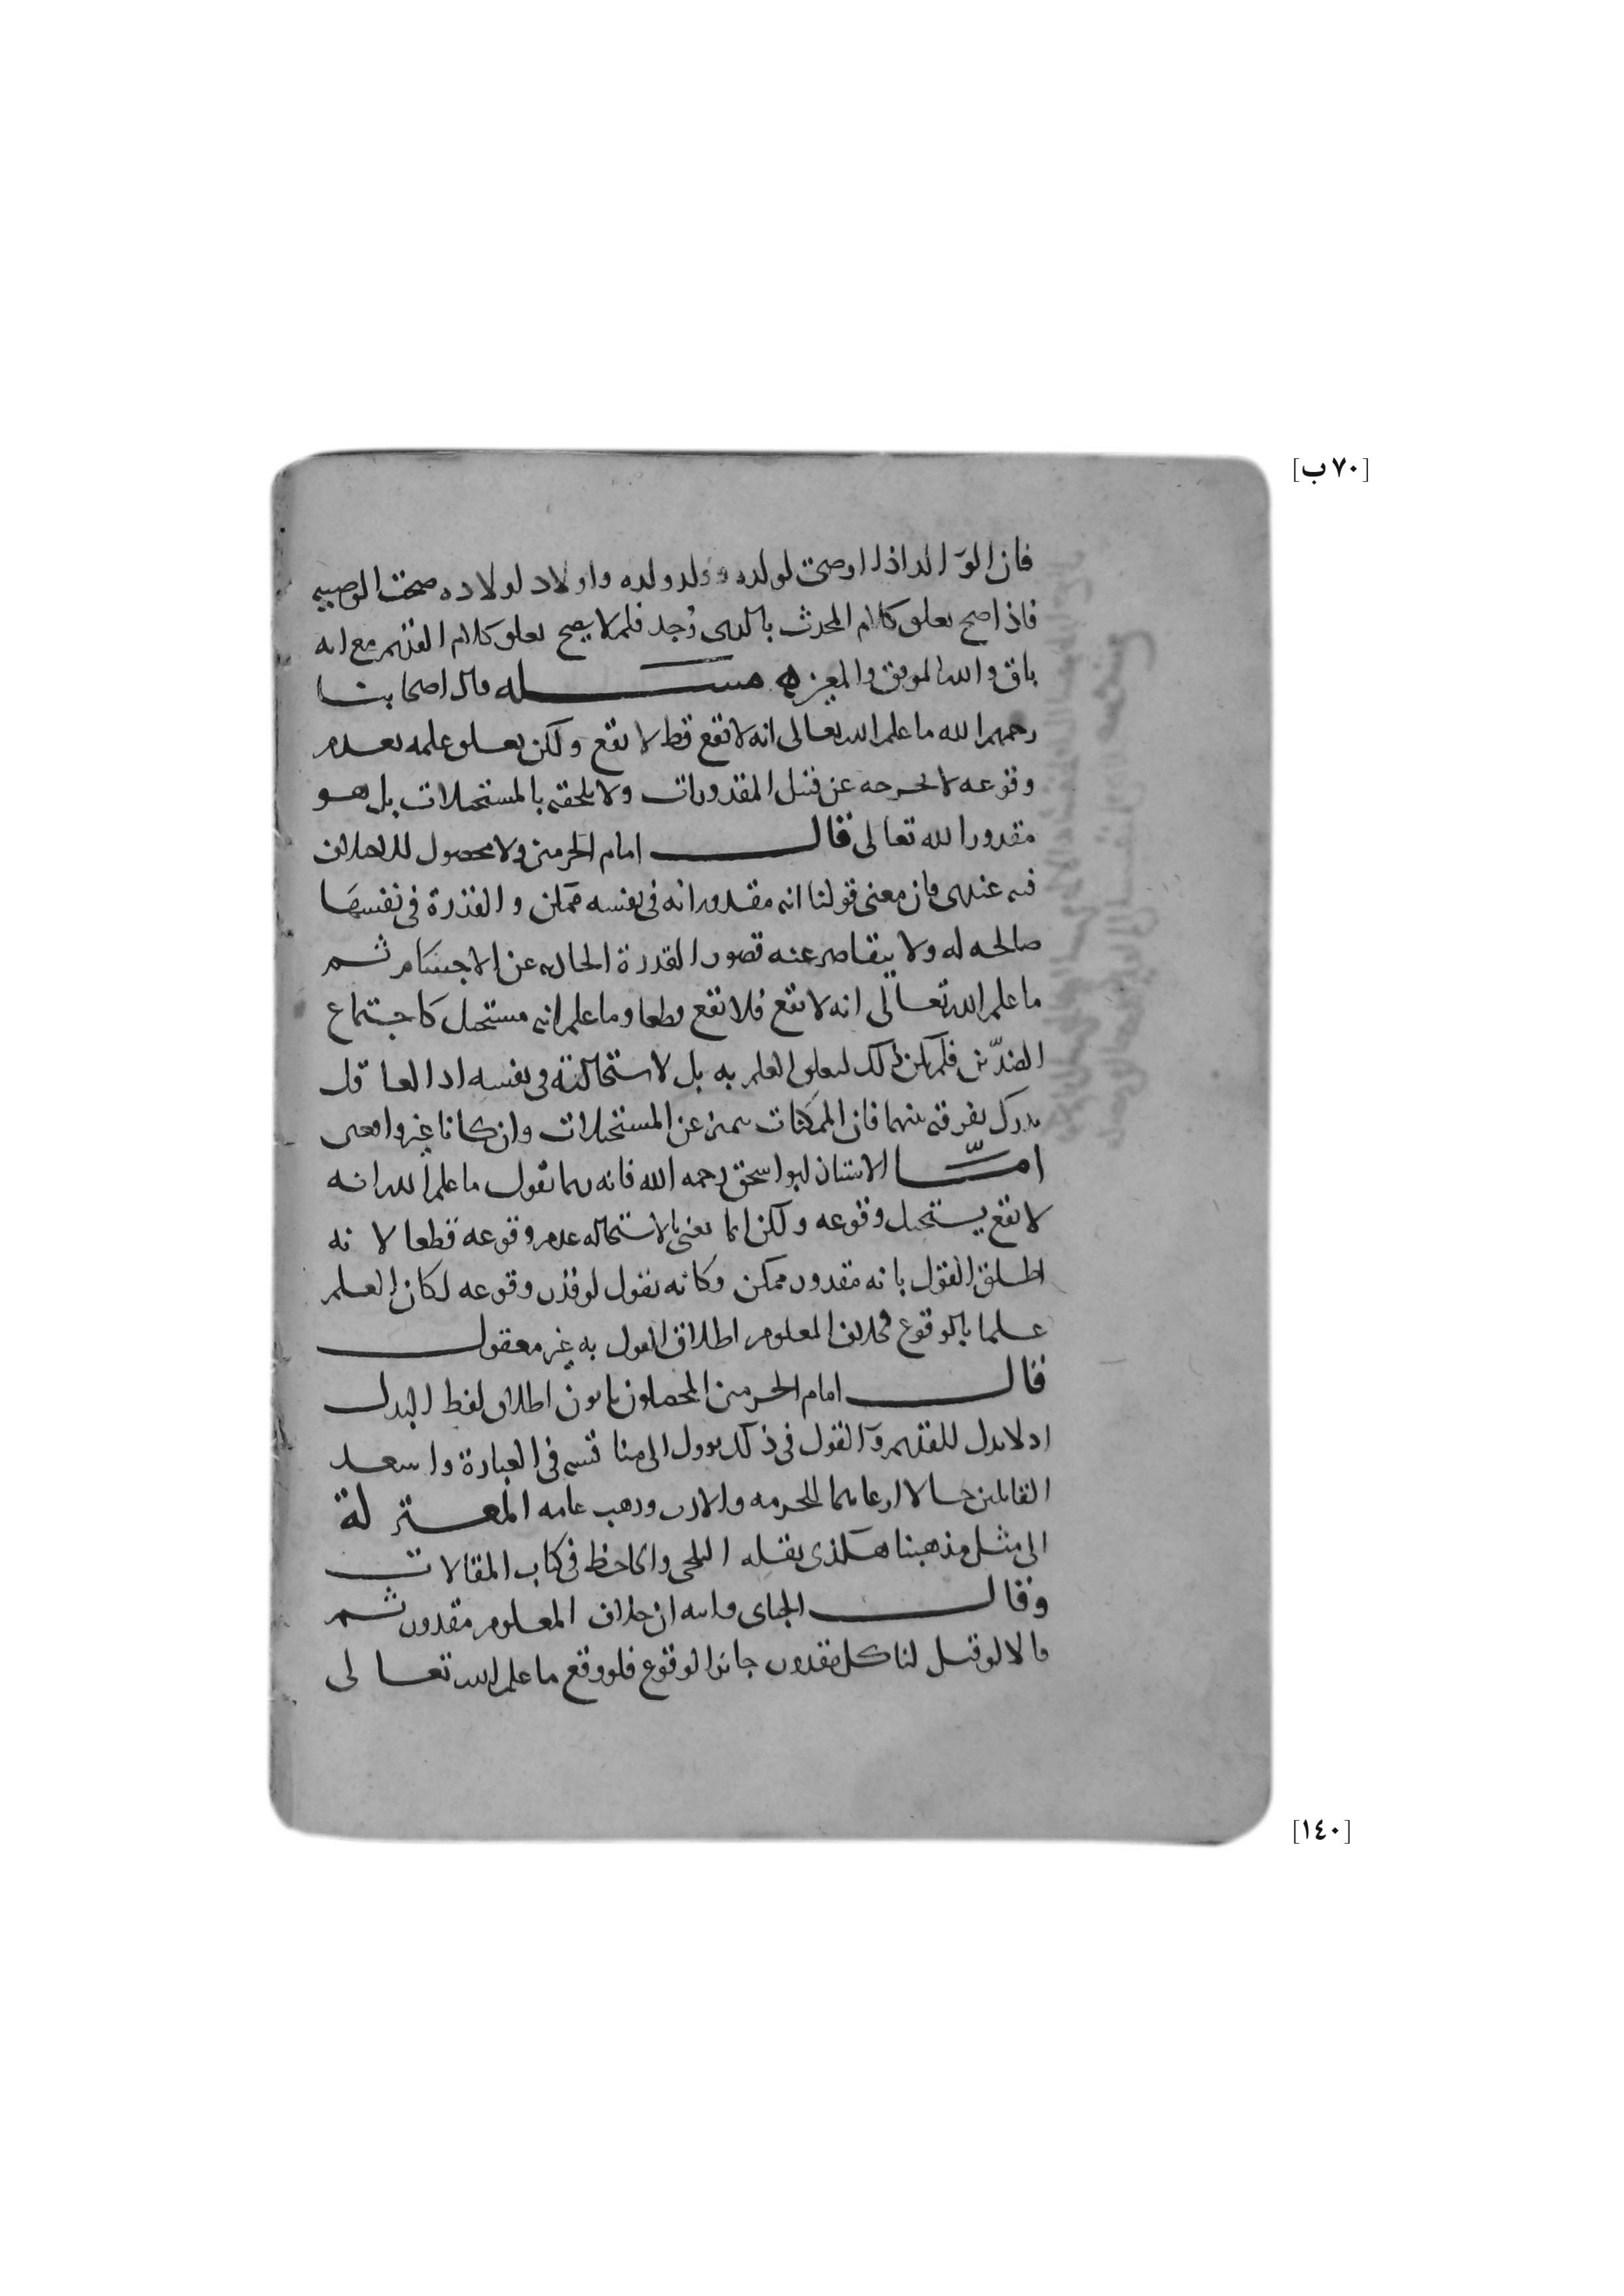 [٧٠ ب]
فان الوالد اذا اوصى لولده وولد ولده واولاد اولاده صحت الوصيه
فاذا صح تعلق كلام المحدث بالذى وُجد فلم لا يصح تعلق كلام القديم مع انه
باق والله الموفق والمعين ه مسـله قال اصحابنا
رحمهم الله ما علم الله تعالى انه لا تقع قط لا يقع ولكن تعلق علمه بعدم
وقوعه لا يخرجه عن قبيل المقدورات ولا يلحقه بالمستحيلات بل هو
مقدور الله تعالى قال امام الحرمين ولا محصول للخلاف
فيه عندى فان معنى قولنا انه مقدور انه فى نفسه ممكن والقدرة فى نفسها
صالحه له ولا يتقاصر عنه قصور القدرة الحادثه عن الاجسام ثم
ما علم الله تعالى انه لا تقع فلا تقع قطعا وما علم انه مستحيل كاجتماع
الضدّين فلم يكن ذلك لتعلق العلم به بل لاستحالته فى نفسه اذ العاقل
يدرك تفرقه بينهما فان الممكنات تتميز عن المستحيلات وان كانا غير واقعين
امّا الاستاذ ابو اسحق رحمه الله فانه ربما يقول ما علم الله انه
لا تقع يستحيل وقوعه ولكن انما يعنى بالاستحاله عدم وقوعه قطعا لانه
اطلق القول بانه مقدور ممكن وكانه يقول لو قدر وقوعه لكان العلم
علما بالوقوع فخلاف المعلوم اطلاق القول به غير معقول
قال امام الحرمين المحصلون يابون اطلاق لفظ البدل
اذ لا بدل للقديم والقول فى ذلك يوول الى مناقشه فى العبارة واسعد
القائلين حالا ارعاهما للحرمه والادب وذهب عامه المعتزلة
الى مثل مذهبنا هكذى نقله البلخى والجاحظ فى كتاب المقالات
وقال الجباى وابنه ان خلاف المعلوم مقدور ثم
قالا لو قيل لنا كل مقدور جائز الوقوع فلو وقع ما علم الله تعالى
[١٤٠]